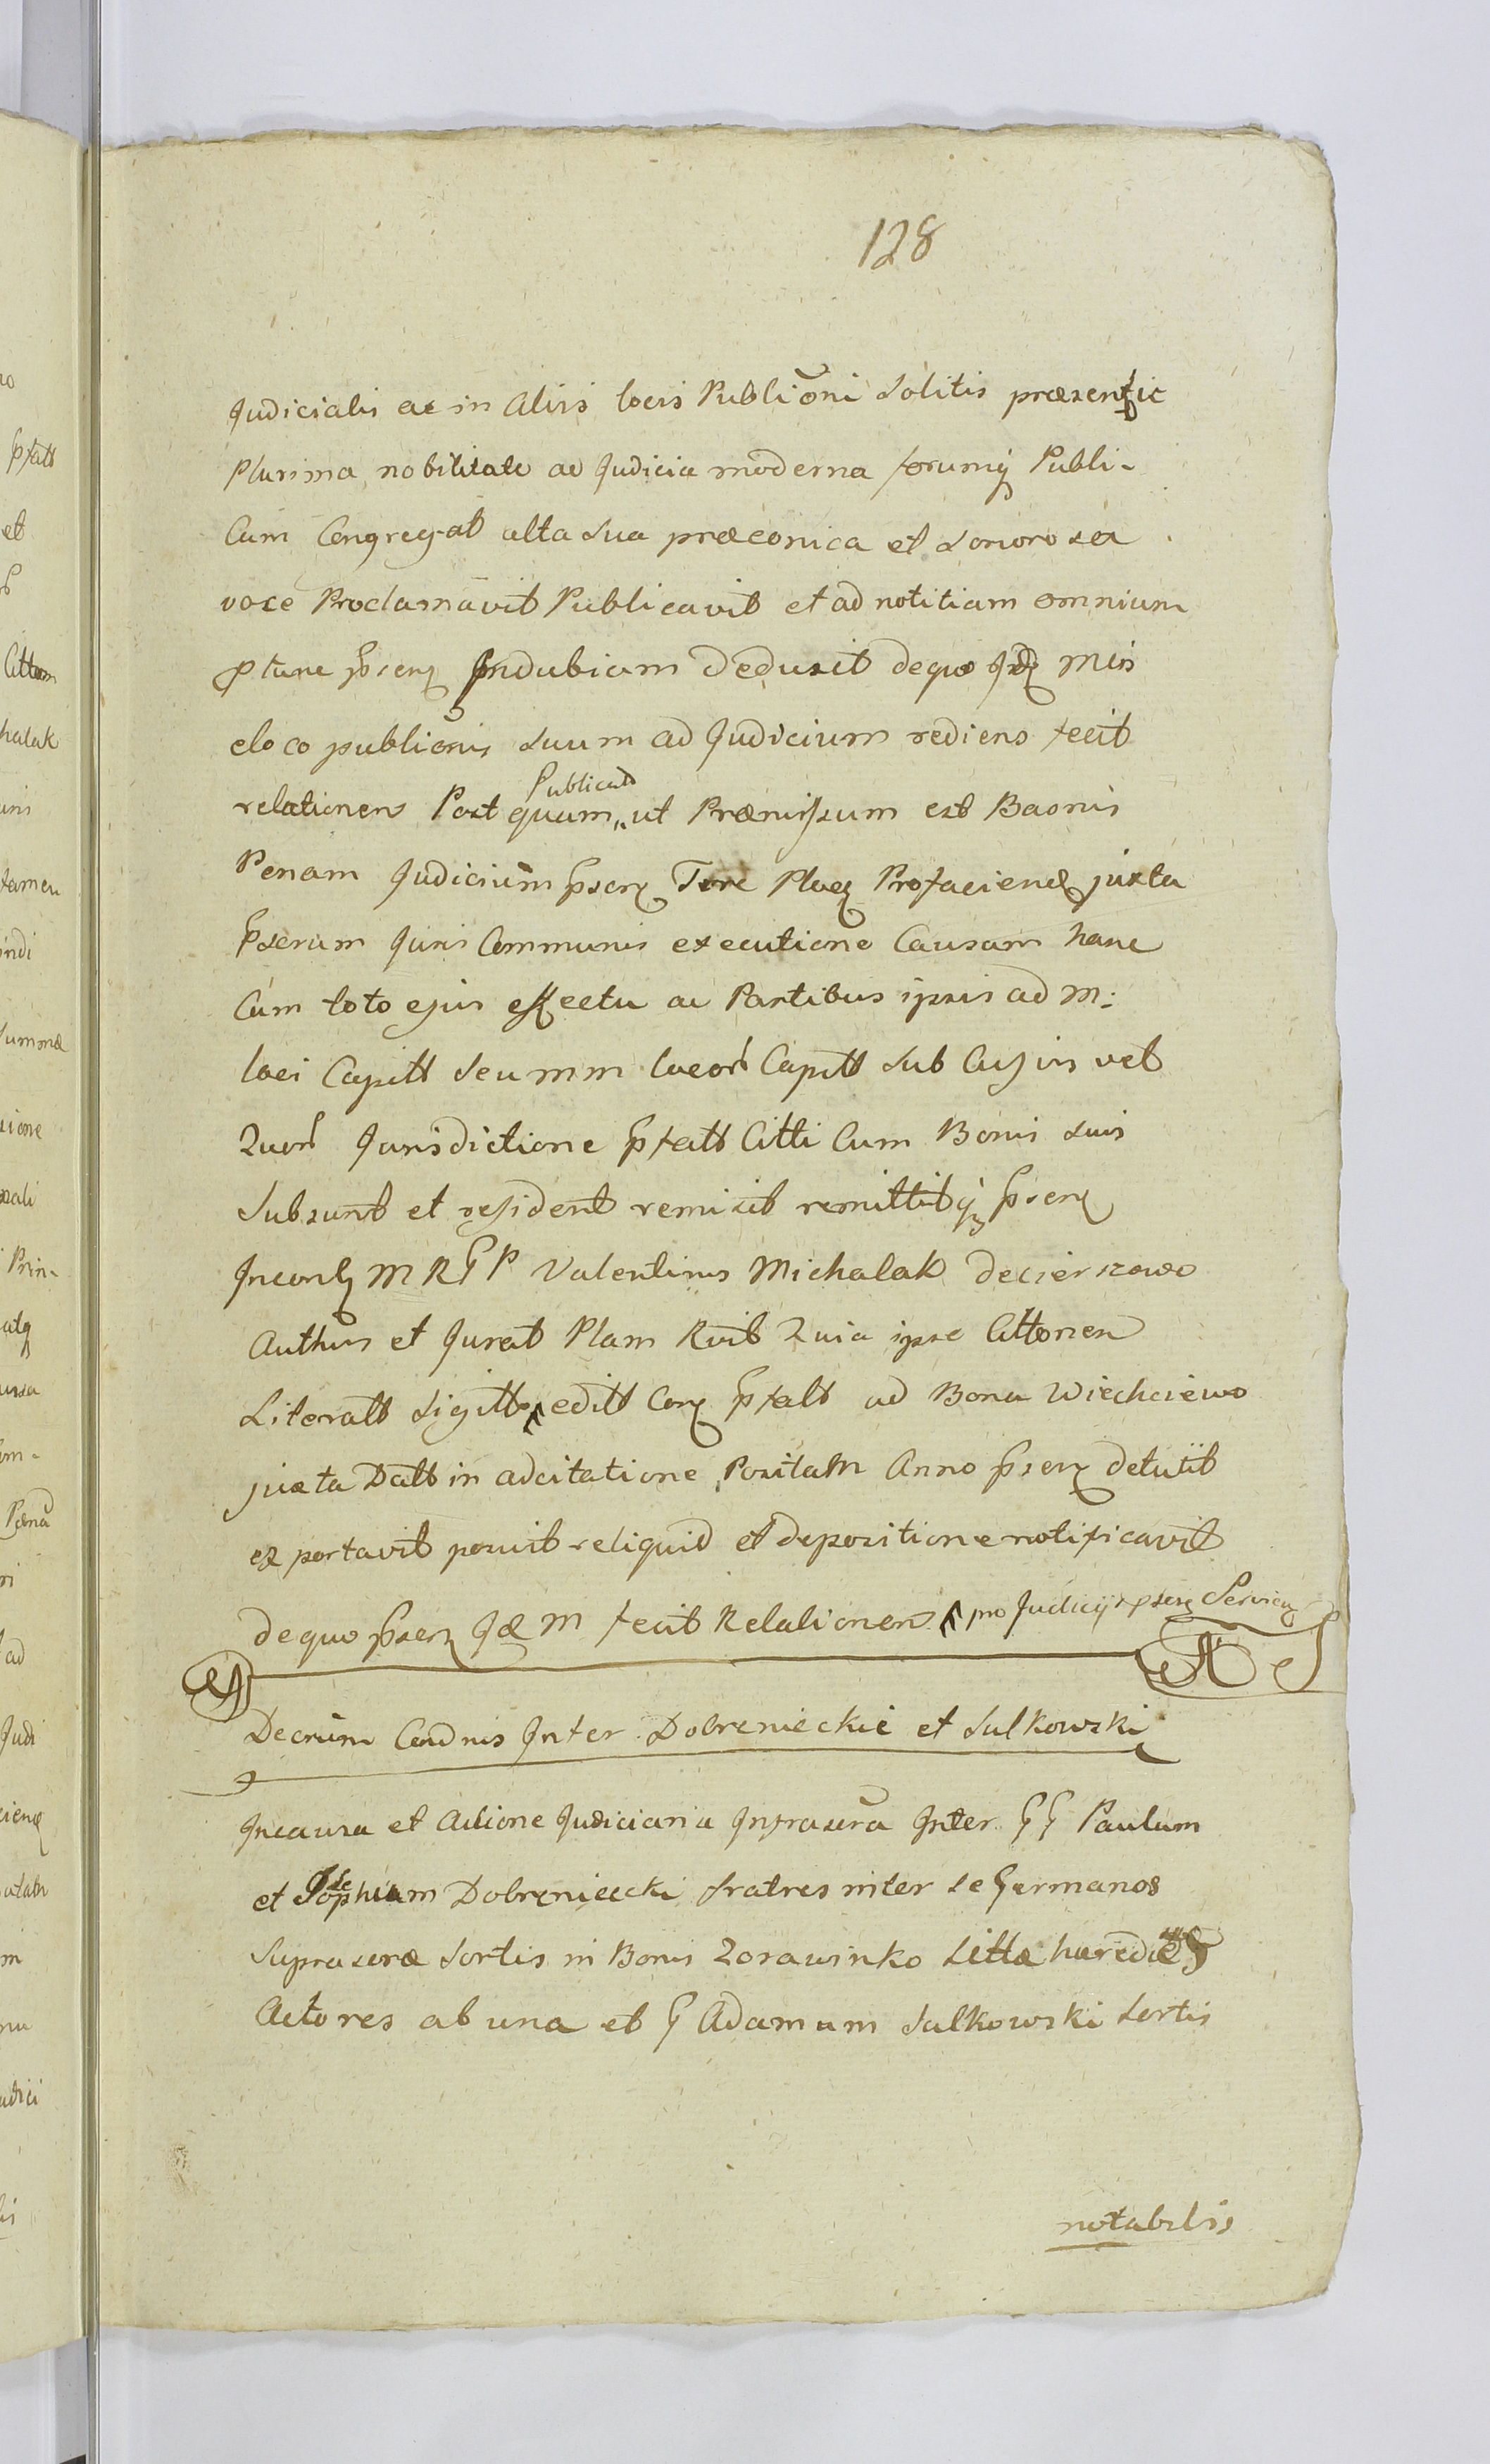 128
Judicialis ac in Aliis locis Publioni Solitis præsente
Plurima nobilitate ad Judicia moderna forumq Publi-
Cum Congregat alta sua præconica et Sonorosa
voce Proclamavit Publicavit et ad notitiam omnium
ptunc psenz Indubiam Deduxit dequo Idz Mis
eloco publionis suum ad Judicium rediens fecit
relationem Post quam Publicat ut Præmissum est Baonis
Penam Judicium psenz Terre Ploez Profaciend juxta
Pserum Juris Communis executione Causam hanc
Cum toto ejus effectu ac Partibus ipsis ad M:
loci Capitt Seu mm locor Capitt Sub Cujus vel
Quor Jurisdictione pfatt Citti Cum Bonis suis
Subsunt et resident remisit remittitq psenz
M R G P Valentinus Michalak decierszewo
Authus et Jurat Plam Rvit Quia ipse Cittonem
Literatt Sigitt editt Conz pfatt ad Bona Wiechciewo
juxta Datt in adcitatione Positam Anno psenz detulit
exportavit posuit reliquid et depositione notificavit
dequo psenz Id M fecit Relationem pro Judicijs psenz Servien
Decrum Condnis Inter Dobrenieckie et Sulkowski
Incausa et Actione Judiciaria Infrascra Inter GG Paulum
et Josephum Dobrzniecki fratres inter se Germanos
Suprascræ Sortis in Bonis Zorawinko Sittæ hæredes
Actores ab una et G Adamum Sulkowski Sortis
notabilis